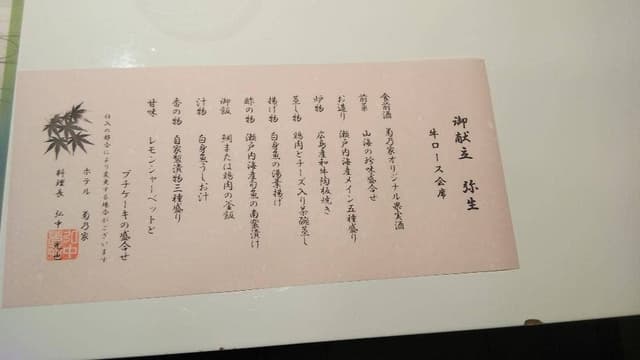 御献立　弥生
牛ロース会席
食前酒　菊乃家オリジナル果実酒
前菜　山海の珍味盛合せ
お造り　瀬戸内海産メイン五種盛り
炉物　広島産和牛陶板焼き
蒸し物　鶏肉とチーズ入り茶碗蒸し
揚げ物　白身魚の湯葉揚げ
酢の物　瀬戸内海産旬魚の南蛮漬け
御飯　鯛または鶏肉の釜飯
汁物　白身魚うしお汁
香の物　自家製漬物三種盛り
甘味　レモンシャーベットと
プチケーキの盛合せ
仕入の都合により変更する場合がございます
ホテル　菊乃家
料理長　弘中